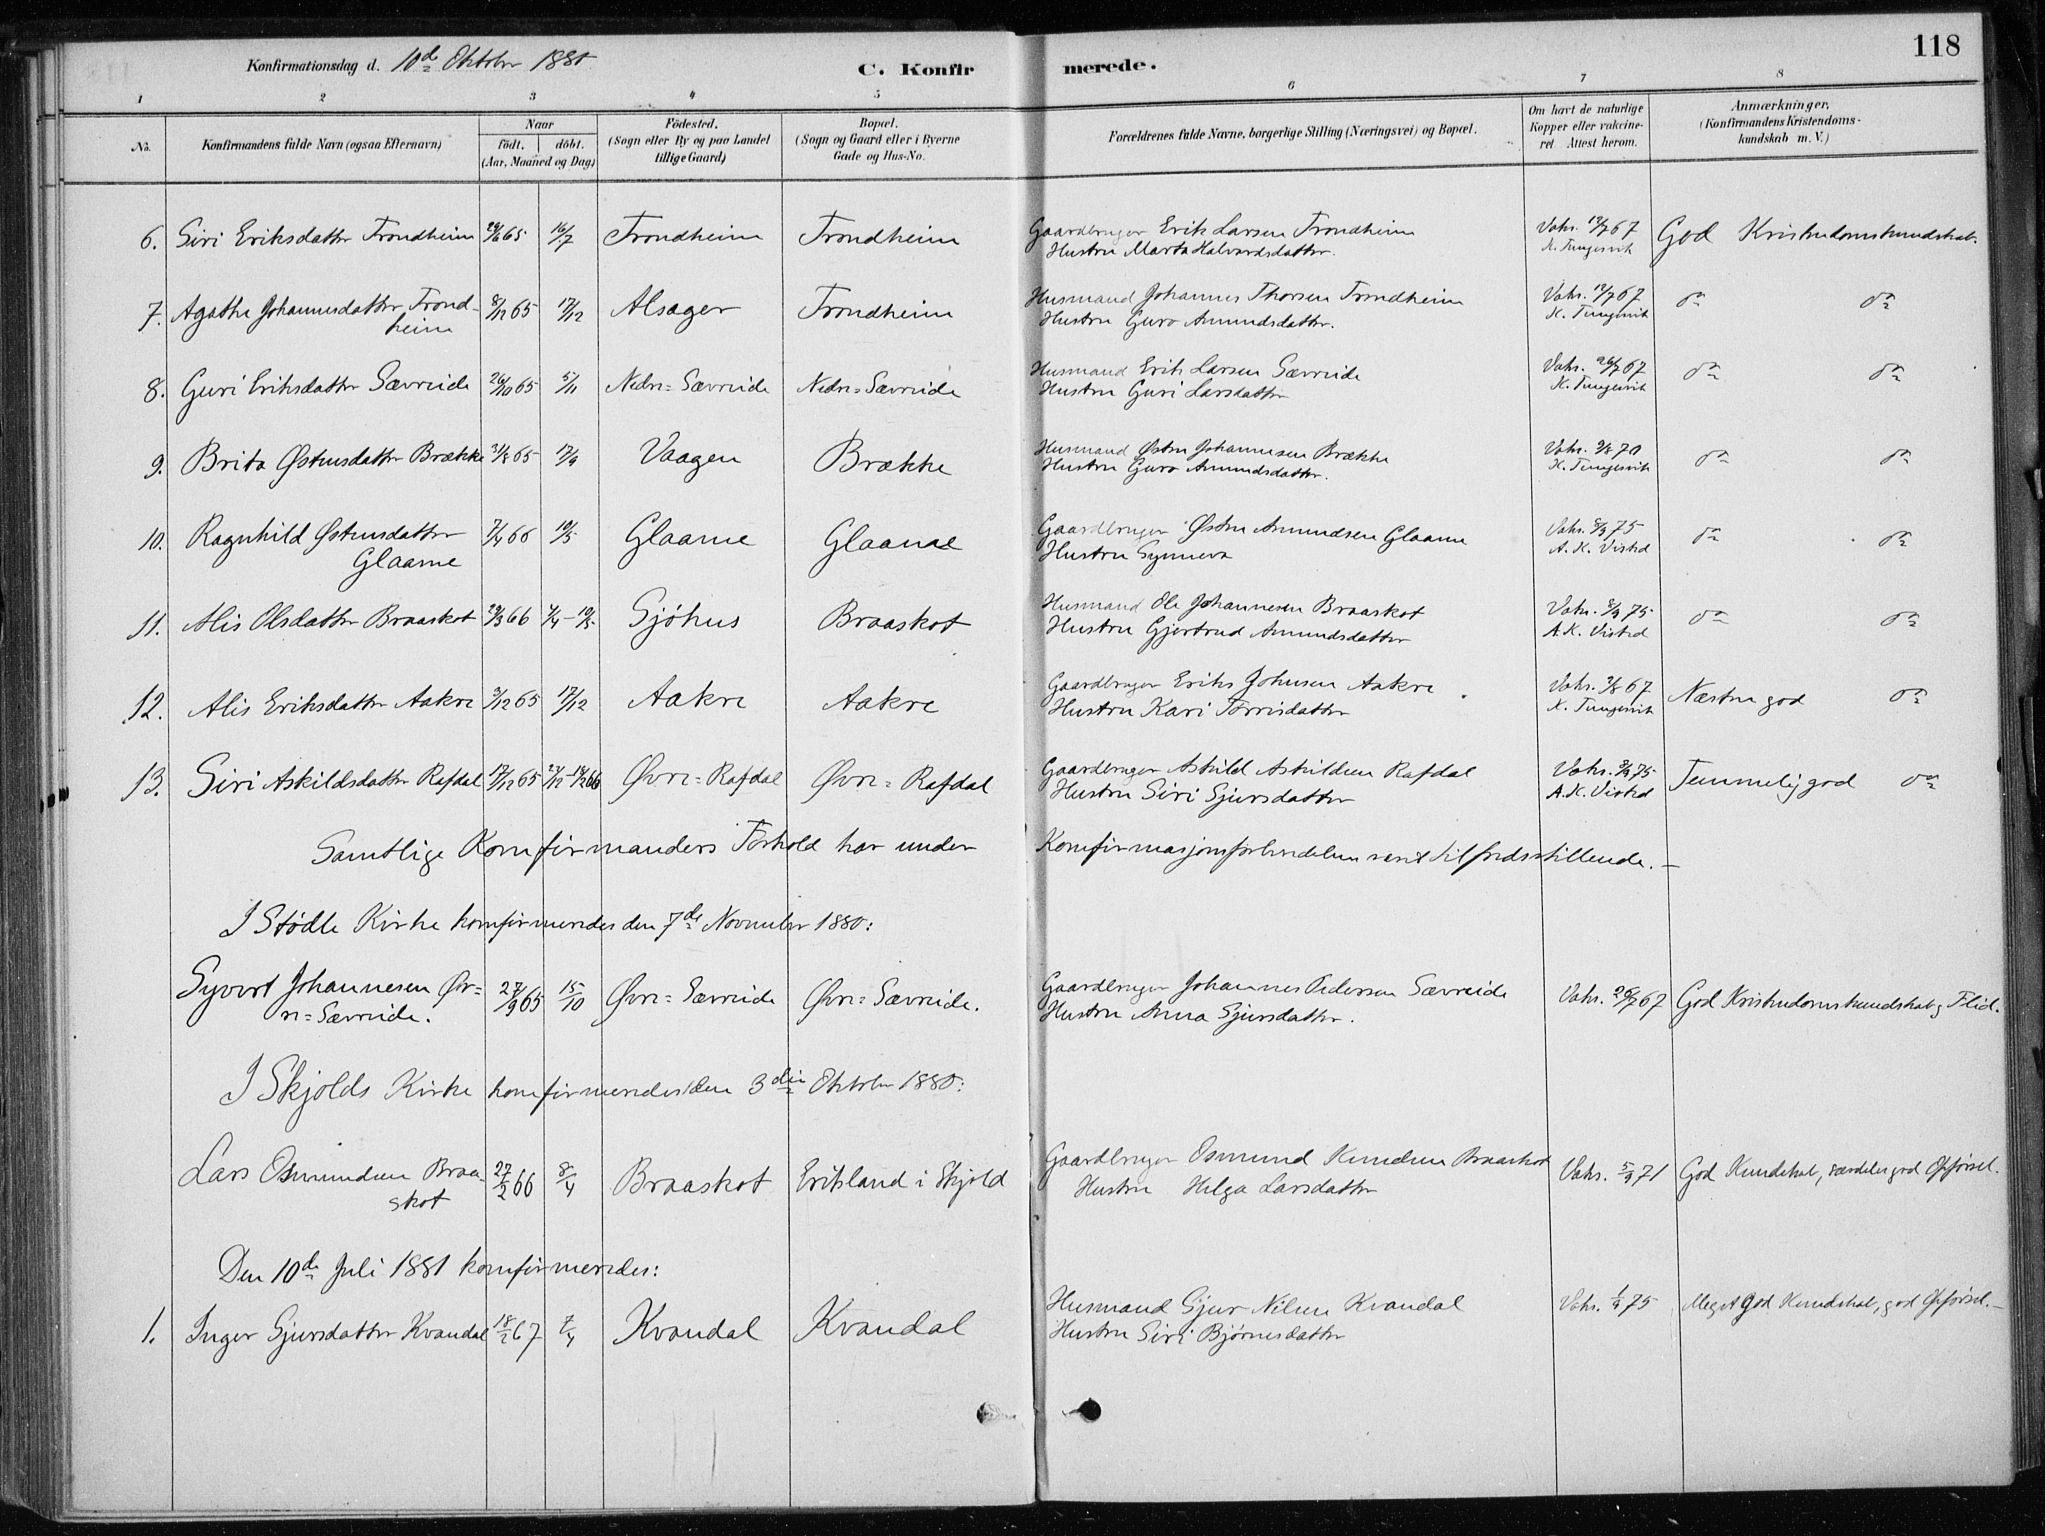 118
Konfirmationsdag d. 10de Oktober 1880.
C. Konfirmerede.
1 2 3 4 5 6 7 8
No.
Konfirmandens fulde Navn (ogsaa Efternavn)
Naar
födt. döbt.
(Aar, Maaned og Dag)
Födested.
(Sogn eller By og paa Landet
tillige Gaard)
Bopæl.
(Sogn og Gaard eller i Byerne
Gade og Hus-No.
Forældrenes fulde Navne, borgerlige Stilling (Næringsvei) og Bopæl.
Om havt de naturlige
Kopper eller vakcine-
ret Attest herom.
Anmærkninger.
(Konfirmandens Kristendoms-
kundskab m. V.)
6. Siri Eriksdatter Trondheim 29/6 65 16/7 Trondheim Trondheim Gaardbruger Erik Larsen Trondheim Vaks. 12/7 67 God Kristendomskundskab.
Hustru Marta Halvardsdatter. K. Tungesvik
7. Agathe Johannesdatter Trond- 8/12 65 17/12 Alsager Trondheim Husmand Johannes Thorsen Trondheim Vaks. 12/7 67 do do
heim Hustru Guro Amundsdatter. K. Tungesvik
8. Guri Eriksdatter Sævreide 26/10 65 5/11 Nedre=Sævreide Nedre=Sævreide Husmand Erik Larsen Sævreide Vaks. 26/7 67 do do
Hustru Guri Larsdatter K. Tungesvik
9. Brita Østensdatter Brække 31/8 65 17/9 Vaagen Brække Husmand Østen Johannesen Brække Vaks. 9/8 70 do do
Hustru Guro Amundsdatter. K. Tungesvik
10. Ragnhild Østensdatter 7/4 66 10/5 Glaame Glaame Gaardbruger Østen Amundsen Glaame Vaks. 8/9 75 do do
Glaame Hustru Synneva A. K. Visted
11. Alis Olsdatter Braaskot 29/3 66 4/4 – 10/5 Sjöhus Braaskot Husmand Ole Johannesen Braaskot Vaks. 8/9 75 do do
Hustru Gjertrud Amundsdatter A. K. Visted
12. Alis Eriksdatter Aakre 3/12 65 17/12 Aakre Aakre Gaardbruger Eriks Johnsen Aakre Vaks. 7/8 67 Næsten god do
Hustru Kari Torrisdatter K. Tungesvik
13. Siri Askildsdatter Rafdal 17/12 65 Øvre=Rafdal Øvre=Rafdal Gaardbruger Askild Askildsen Rafdal Vaks. 9/9 75 Temmelig god do
Hustru Siri Sjursdatter A. K. Visted
Samtlige Konfirmanders Forhold har under Konfirmasjonsforberedelsen været tilfredsstillende. –
I Stødle Kirke konfirmeredes den 7de November 1880:
Syvert Johannesen Øv- 27/9 65 15/10 Øvre=Sævreide Øvre=Sævreide. Gaardbruger Johannes Pedersen Sævreide Vaks. 26/7 67 God Kristendomskundskab og Flid.
re=Sævreide. Hustru Anna Sjursdatter.
I Skjolds Kirke konfirmeredes den 3die Oktober 1880:
Lars Osmundsen Braa- 27/2 66 8/4 Braaskot Eriksland i Skjold Gaardbruger Osmund Knudsen Braaskot Vaks. 5/9 71 God Kundskab, særdeles god Opførsel.
skot Hustru Helga Larsdatter
Den 10de Juli 1881 konfirmeredes:
1. Inger Sjursdatter Kvandal 18/2 67 7/4 Kvandal Kvandal Husmand Sjur Nilsen Kvandal Vaks. 1/9 75 Meget god Kundskab, god Opførsel. –
Hustru Siri Bjørnesdatter